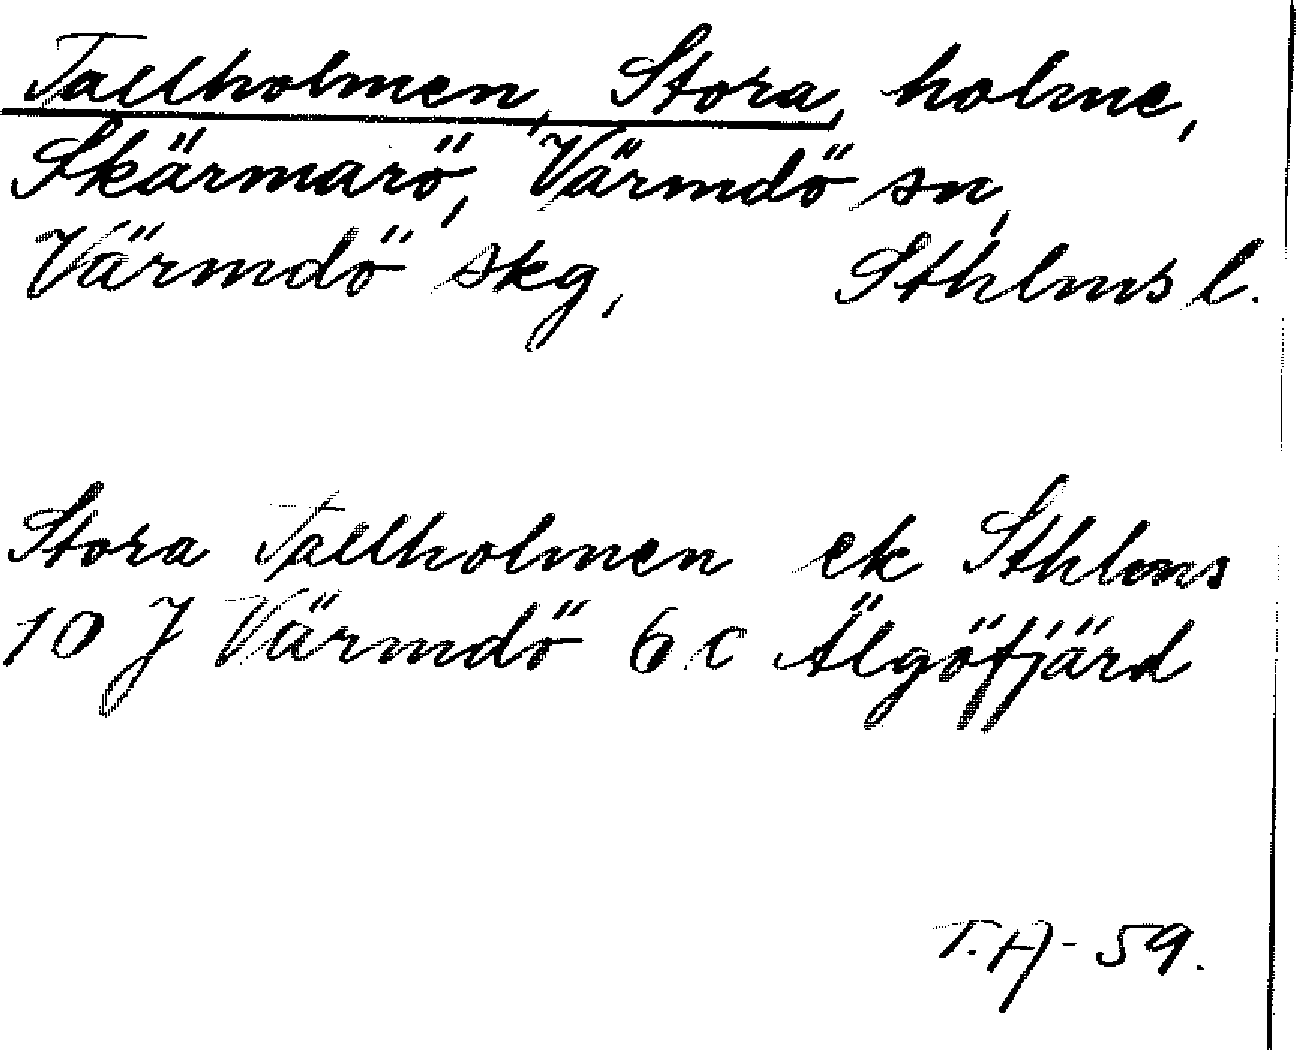 Tallholmen, Stora, holme,
Skärmarö, Värmdö sn,
Värmdö skg, Sthlms l.
Stora Tallholmen ek Sthlms
10 J Värmdö 6 c Älgöfjärd
T.A-59.